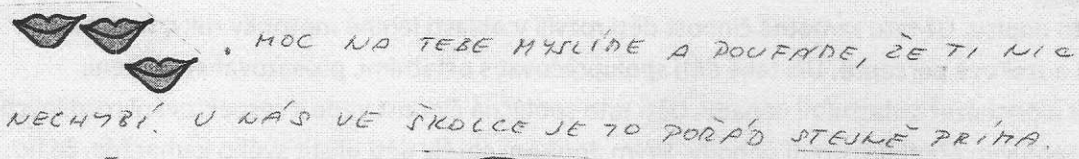 . MOC NA TEBE MYSLÍME A DOUFÁME, ŽE TI NIC
NECHYBÍ. U NÁS VE ŠKOLCE JE TO POŘÁD STEJNĚ PRÍMA.